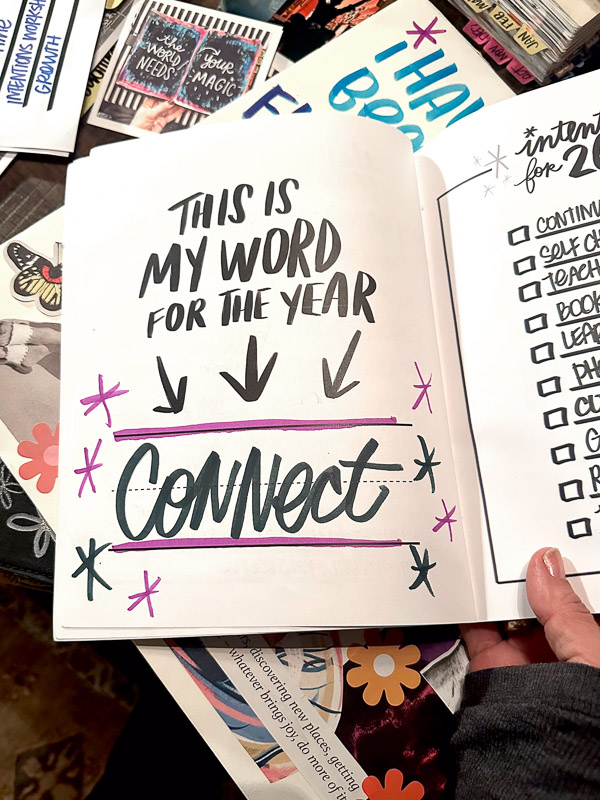 INTENTIONS WORKSH
GROWTH
the
WORLD
NEEDS
YOUR
MAGIC
I HAV
JAN
FEB
THIS IS
MY WORD
FOR THE YEAR
CONNECT
intent
for 20
CONTINU
SELF C
TEACH
BOOK
LEA
PH
discovering new places, getting
whatever brings joy, do more of it